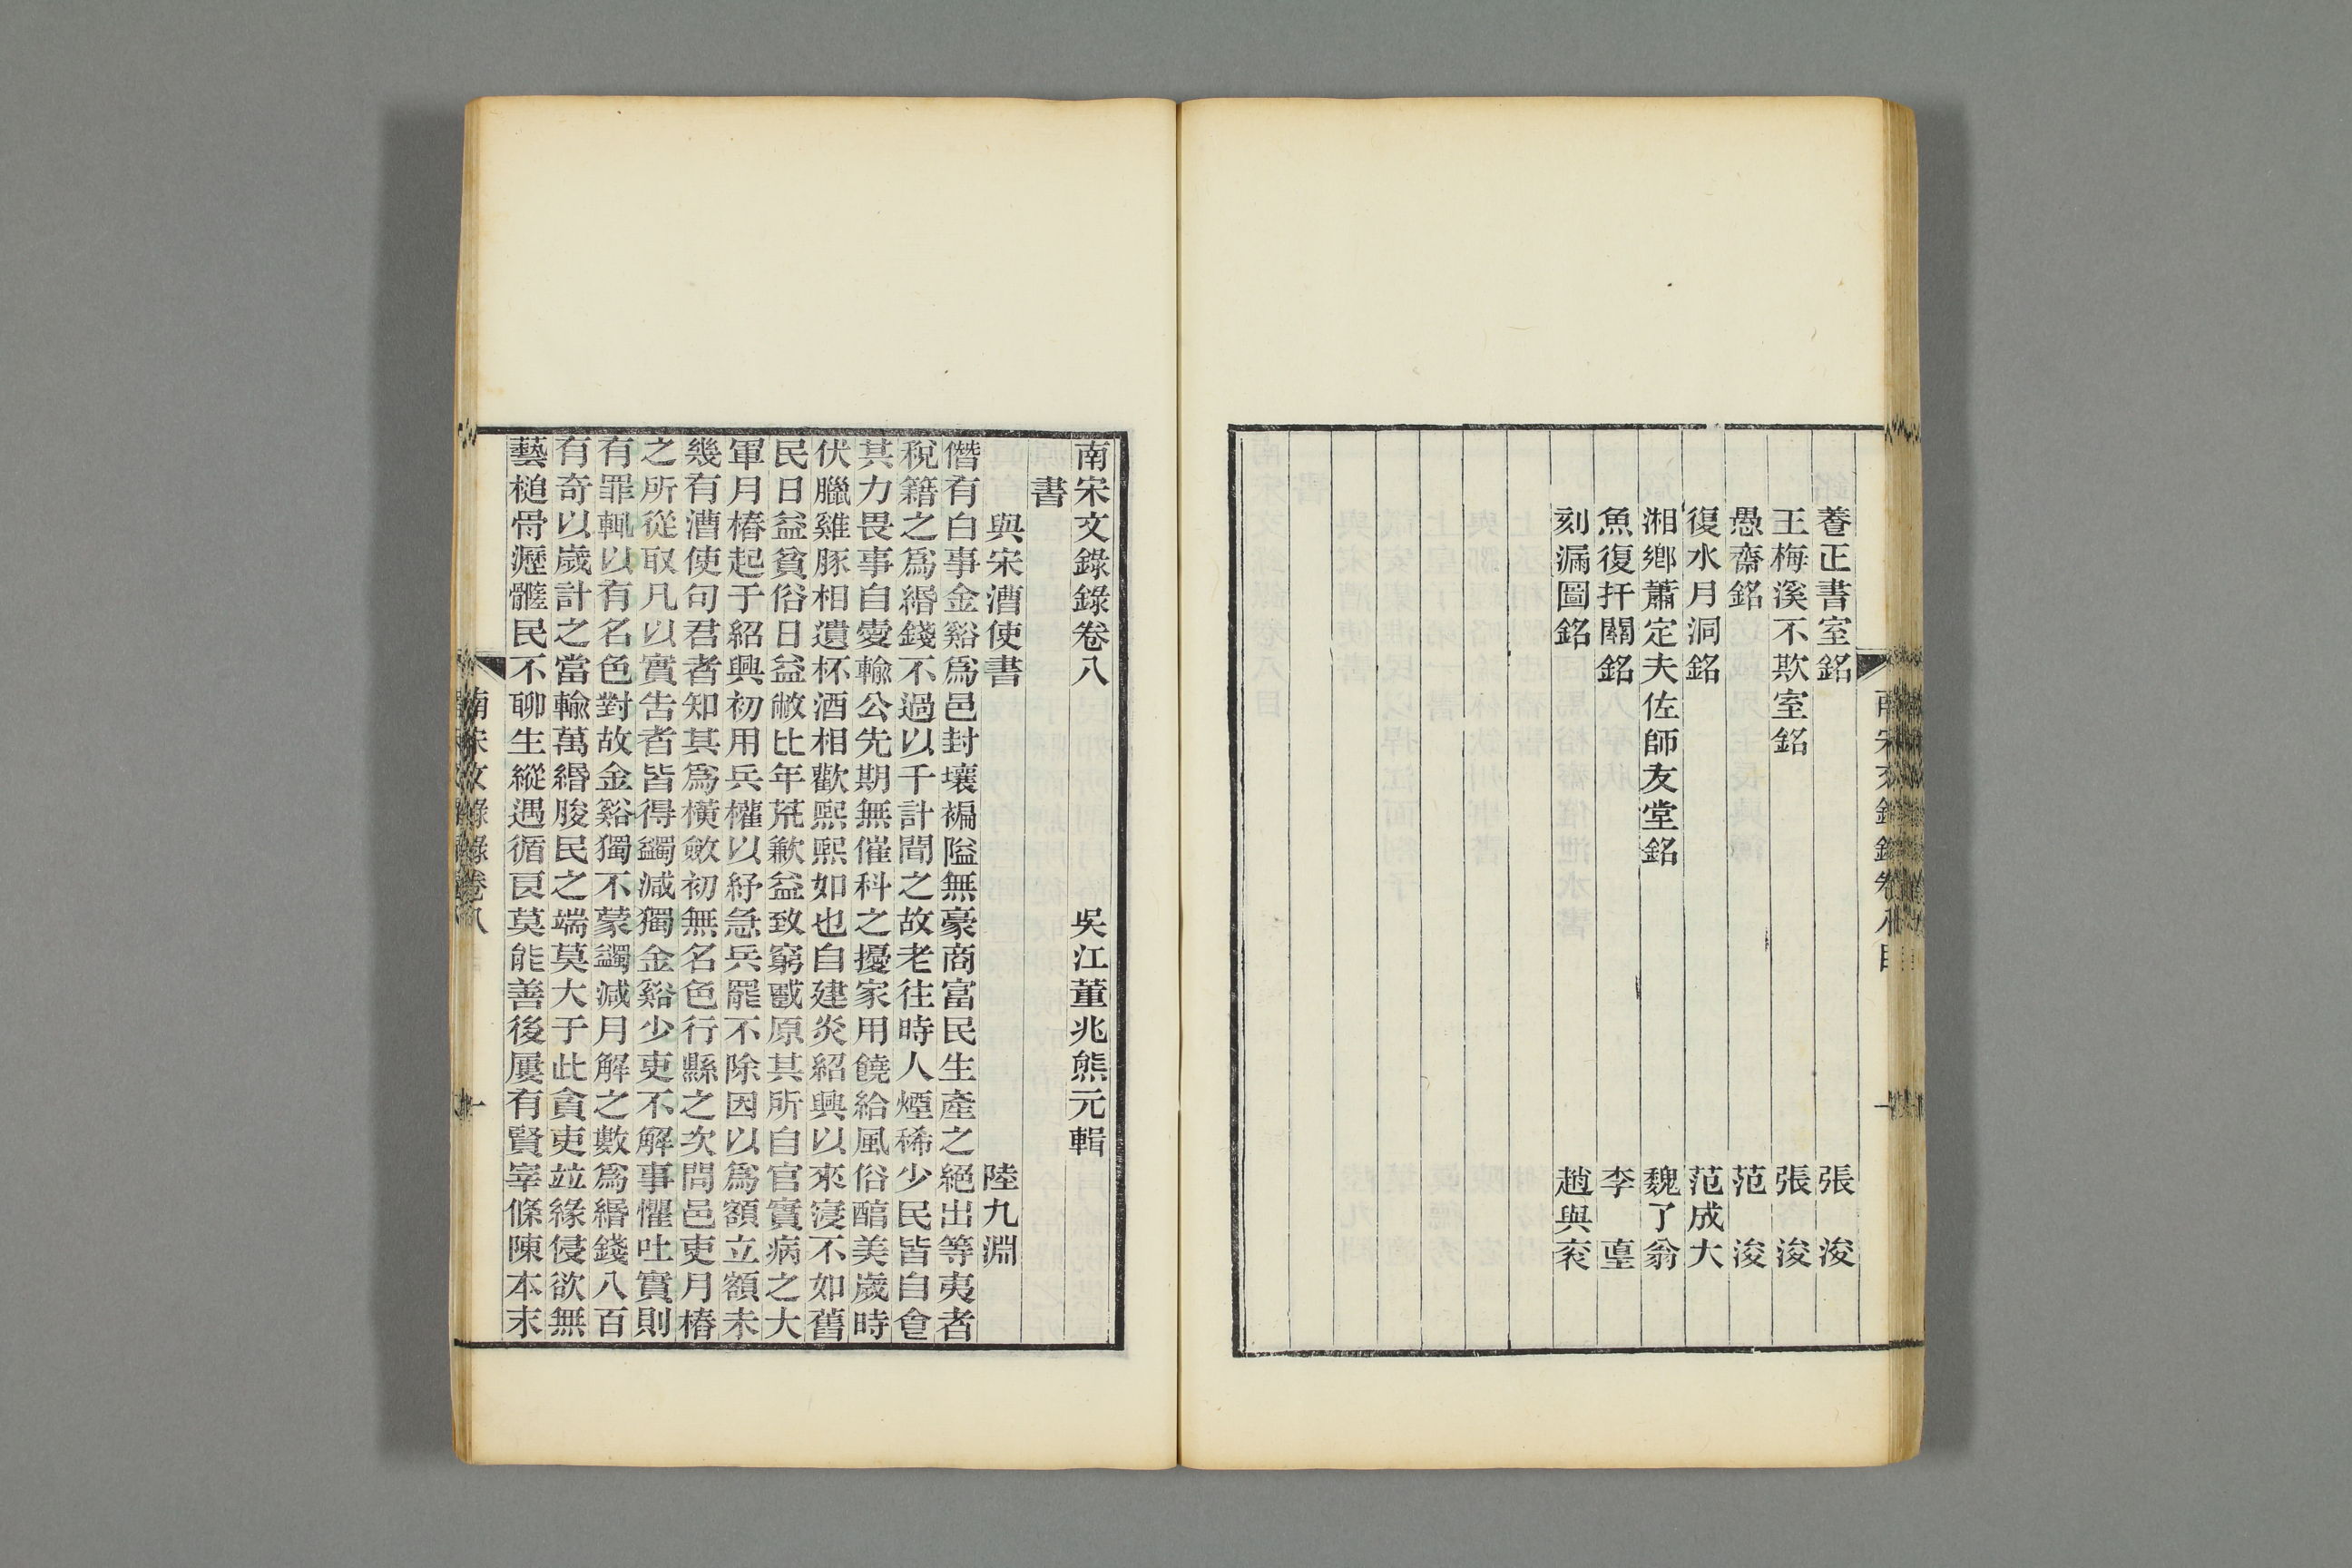 南宋文錄錄卷八目
養正書室銘　張浚
王梅溪不欺室銘　張浚
愚齋銘　范浚
復水月洞銘　范成大
湘鄉蕭定夫佐師友堂銘　魏了翁
魚復扞關銘　李𡐓
刻漏圖銘　趙與䆮
南宋文錄錄卷八　吳江董兆熊元輯
書
與宋漕使書　陸九淵
僭有白事金谿爲邑封壤褊隘無豪商富民生產之絕出等夷者
稅籍之爲緡錢不過以千計聞之故老往時人煙稀少民皆自食
其力畏事自愛輸公先期無催科之擾家用饒給風俗醇美歲時
伏臘雞豚相遺杯酒相歡熙熙如也自建炎紹興以來寖不如舊
民日益貧俗日益敝比年荒歉益致窮蹙原其所自官實病之大
軍月樁起于紹興初用兵權以紓急兵罷不除因以爲額立額未
幾有漕使句君者知其爲橫斂初無名色行縣之次問邑吏月樁
之所從取凡以實告者皆得蠲減獨金谿少吏不解事懼吐實則
有罪輒以有名色對故金谿獨不蒙蠲減月解之數爲緡錢八百
有奇以歲計之當輸萬緡朘民之端莫大于此貪吏竝緣侵欲無
藝槌骨瀝髓民不聊生縱遇循良莫能善後屢有賢宰條陳本末
南宋文錄錄卷八　一